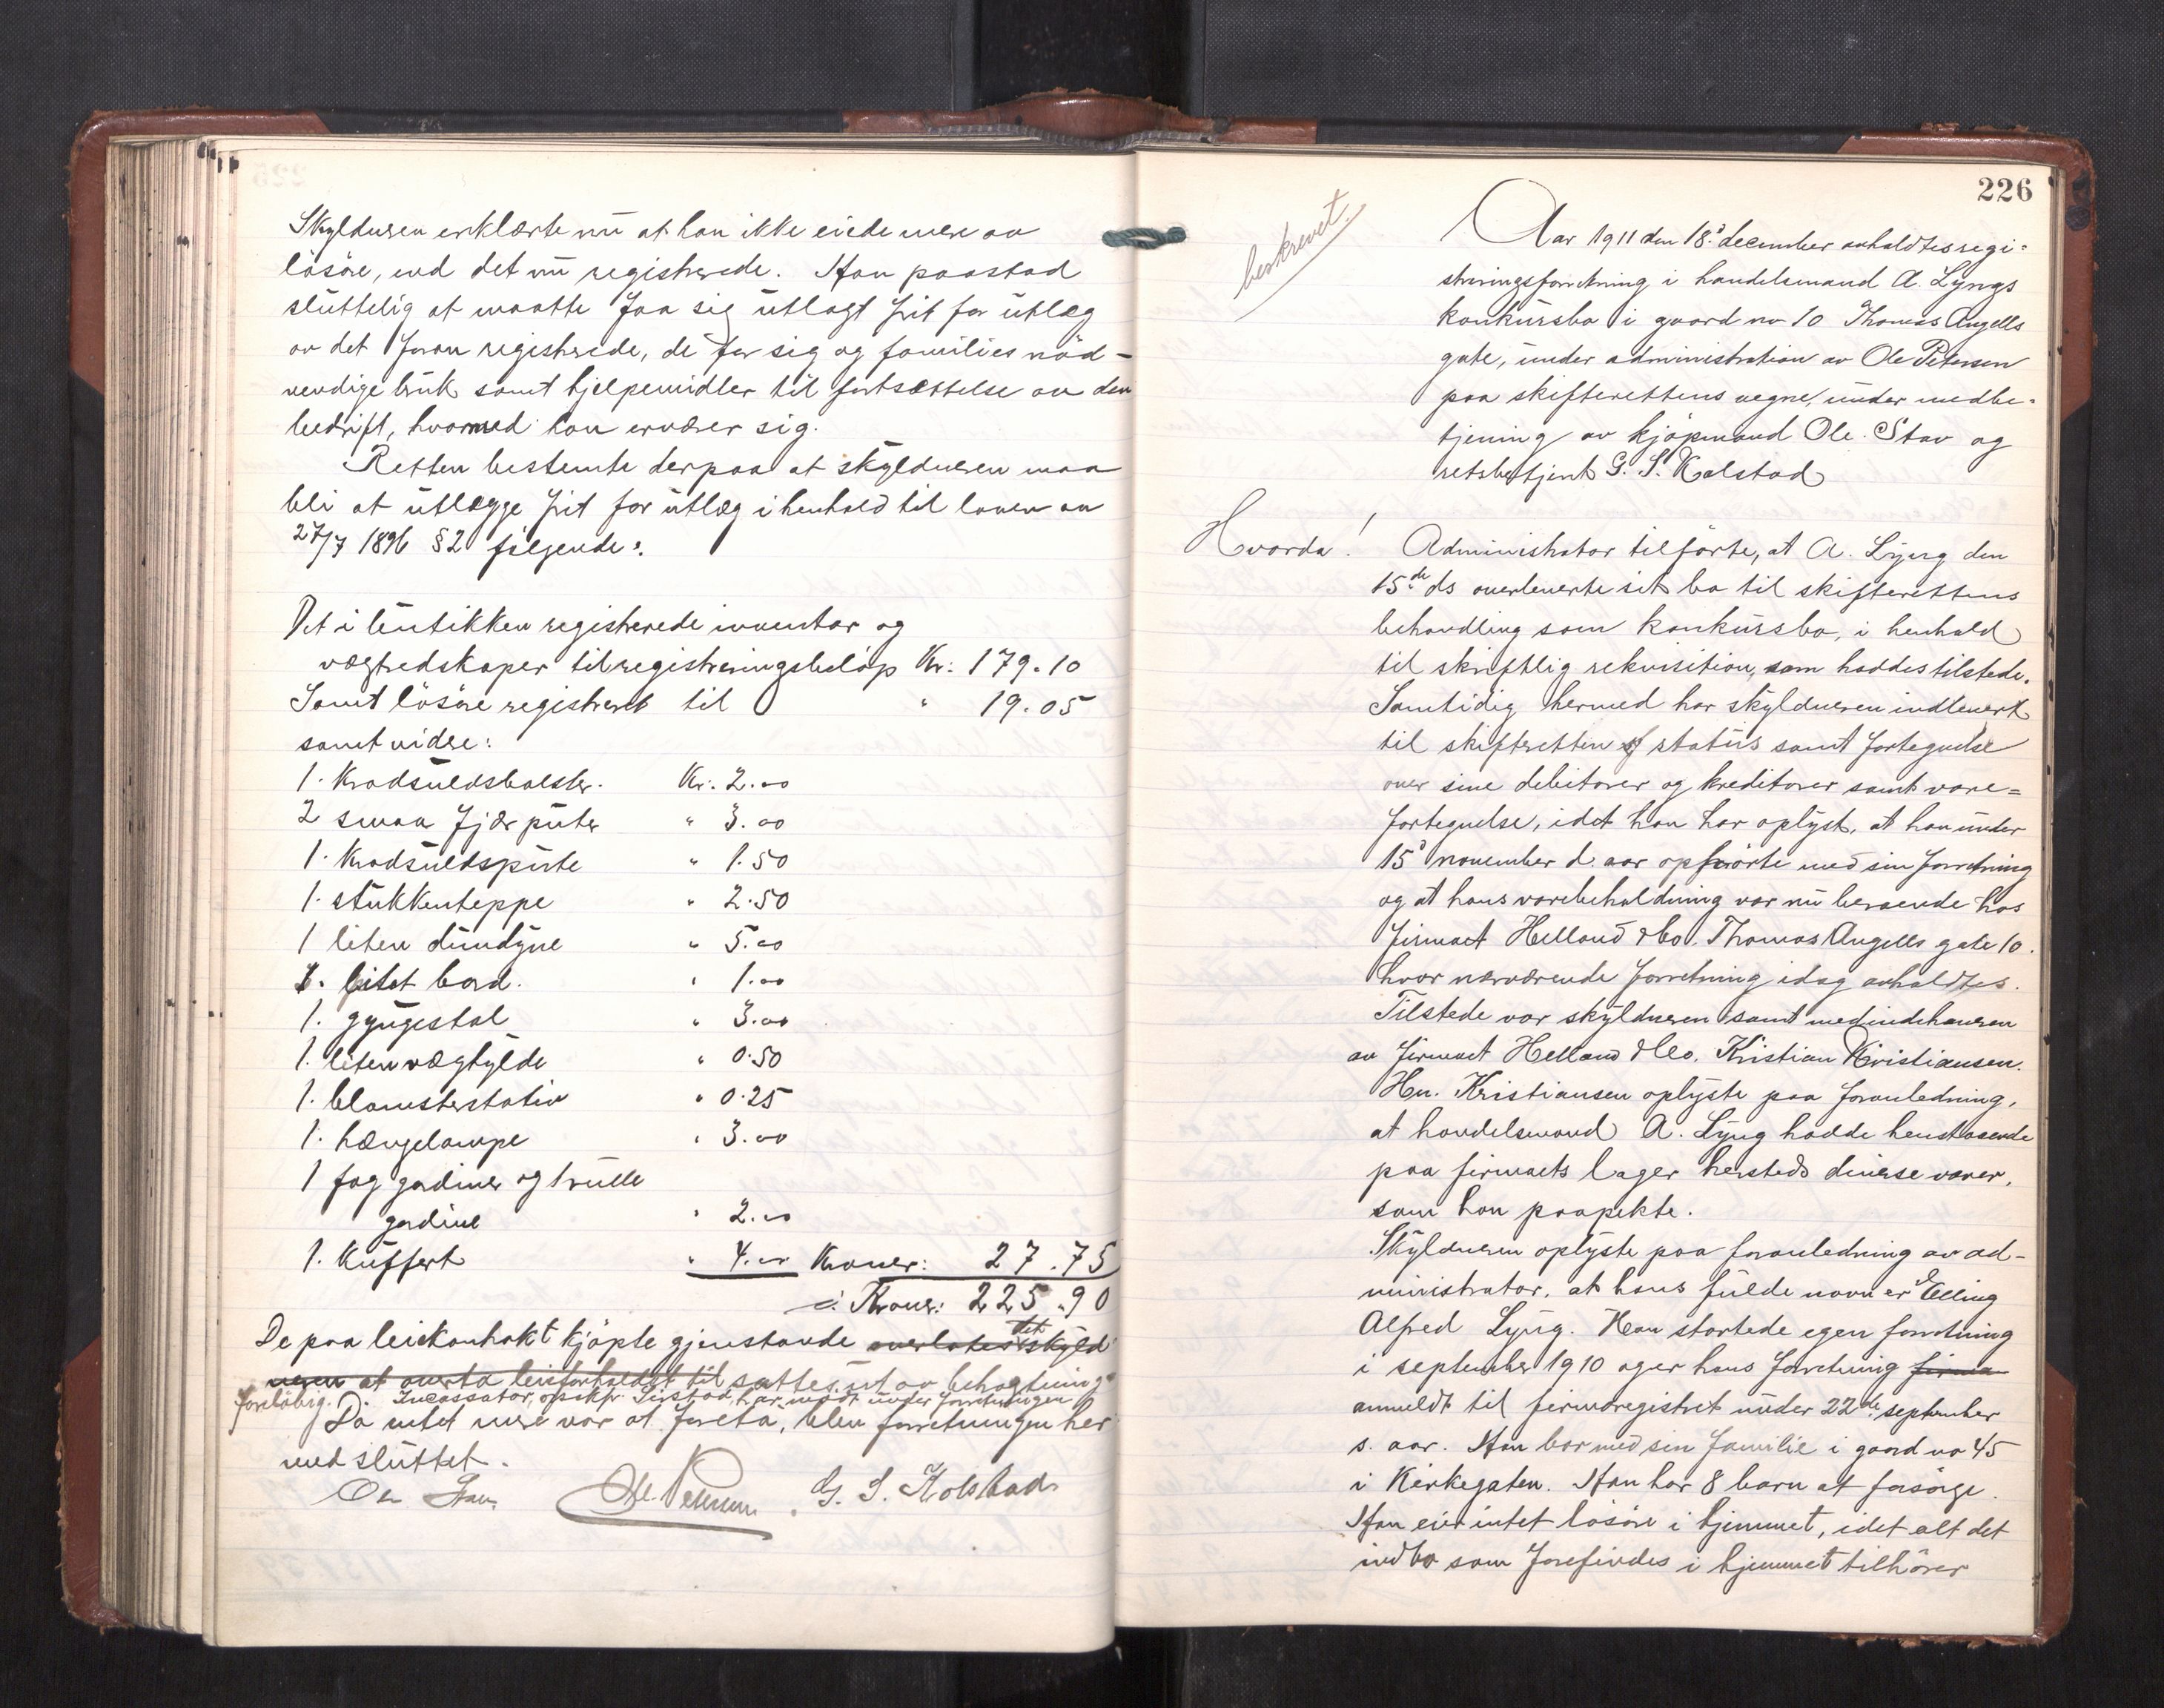 Skyldneren erklærte nu at han ikke eiede mere av
løsøre, end det nu registrerede. Han paastod
sluttelig at maatte faa sig utlagt frit for utlæg
av det foran registrerede, de for sig og families nød-
vendige bruk samt hjelpemidler til fortsættelse av den
bedrift, hvormed han ernærer sig.
Retten bestemte derpaa at skyldneren maa
bli at utlægge frit for utlæg i henhold til loven av
27/7 1896 § 2 følgende:
Det i butikken registrerede inventar og
vægtredskaper til registreringsbeløp Kr: 179.10
Samt løsøre registrert til " 19.05
samt videre:
1. Kradsuldsbolster. Kr: 2.00
2 smaa fjærputer " 3.00
1. Kradsuldspute " 1.50
1. stukkenteppe " 2.50
1 liten dundyne " 5.00
1. litet bord. " 1.00
1. gyngestol " 3.00
1. liten væghylde " 0.50
1. blomsterstativ " 0.25
1. hængelampe " 3.00
1 fag gardiner og 1 rulle
gardine " 2.00
1. Kuffert " 4.00 Kroner: 27.75
Kroner: 225.90
De paa leiekontrakt kjøpte gjenstande overlates det skyld
neren at overta leieforholdet til sattes ut av behagtning
foreløbig. Incassator, opskfr. Sirstad, har møtt under forretningen
Da intet mere var at foreta, blev forretningen her
med sluttet.
Ole Stav Ole Petersen G. S. Kolstad
226
beskrevet
Aar 1911 den 18. december avholdtes regi-
streringsforretning i handelsmand A. Lyngs
konkursbo i gaard no 10 Thomas Angells
gate, under administration av Ole Petersen
paa skifterettens vegne, under medbe-
tjening av kjøpmand Ole Stav og
retsbetjent G. S. Kolstad
Hvorda! Administrator tilførte, at A. Lyng den
15de ds overleverte sit bo til skifterettens
behandling som konkursbo, i henhold
til skriftlig rekvisition, som haddes tilstede.
Samtidig hermed har skyldneren indlevert
til skifteretten status samt fortegnelse
over sine debitorer og kreditorer samt vare-
fortegnelse, idet han har oplyst, at han under
15. november d. aar ophørte med sin forretning
og at hans varebeholdning var nu beroende hos
firmaet Helland & Co. Thomas Angells gate 10.
hvor nærværende forretning idag avholdtes.
Tilstede var skyldneren samt medindehaveren
av firmaet Helland & Co. Kristian Kristiansen.
Hr. Kristiansen oplyste paa foranledning,
at handelsmand A. Lyng hadde henstaaende
paa firmaets lager hersteds diverse varer,
som han paapekte.
Skyldneren oplyste paa foranledning av ad-
ministrator, at hans fulde navn er Elling
Alfred Lyng. Han startede egen forretning
i september 1910 og er hans forretning firma
anmeldt til firmaregistret under 22de september
s. aar. Han bor med sin familie i gaard no 45
i Kirkegaten. Han har 8 barn at forsørge.
Han eier intet løsøre i hjemmet, idet alt det
indbo som forefindes i hjemmet tilhører